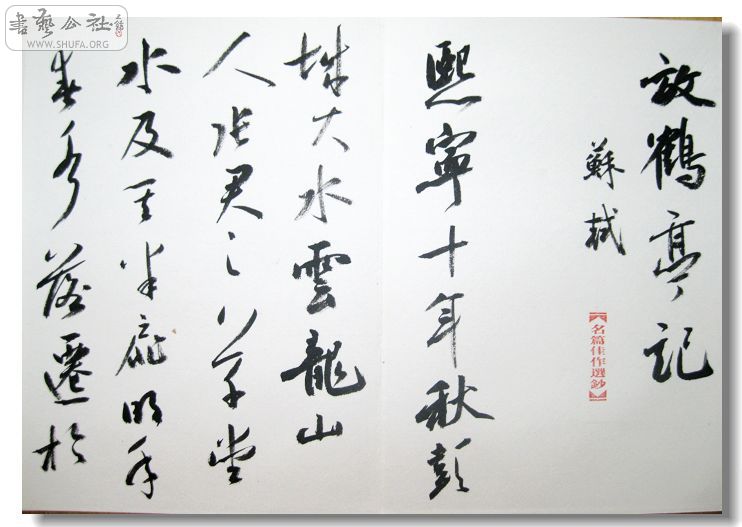 放鶴亭記
蘇軾
名篇佳作選鈔
熙寧十年秋彭
城大水雲龍山
人張君之草堂
水及其半扉明年
春水落遷於
書藝公社
WWW.SHUFA.ORG